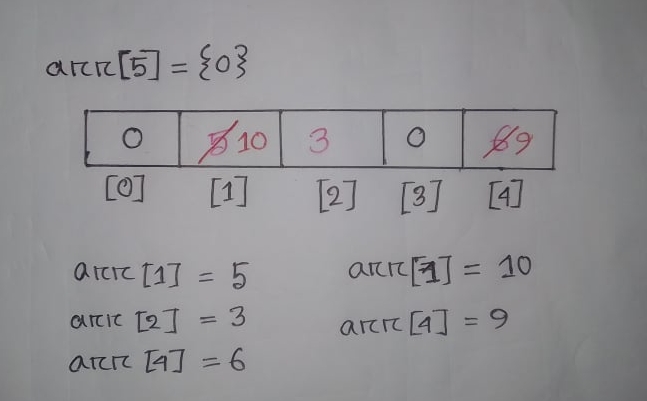 arr[5] = {0}
0 5 10 3 0 6 9
[0] [1] [2] [3] [4]
arr[1] = 5
arr[2] = 3
arr[4] = 6
arr[1] = 10
arr[4] = 9